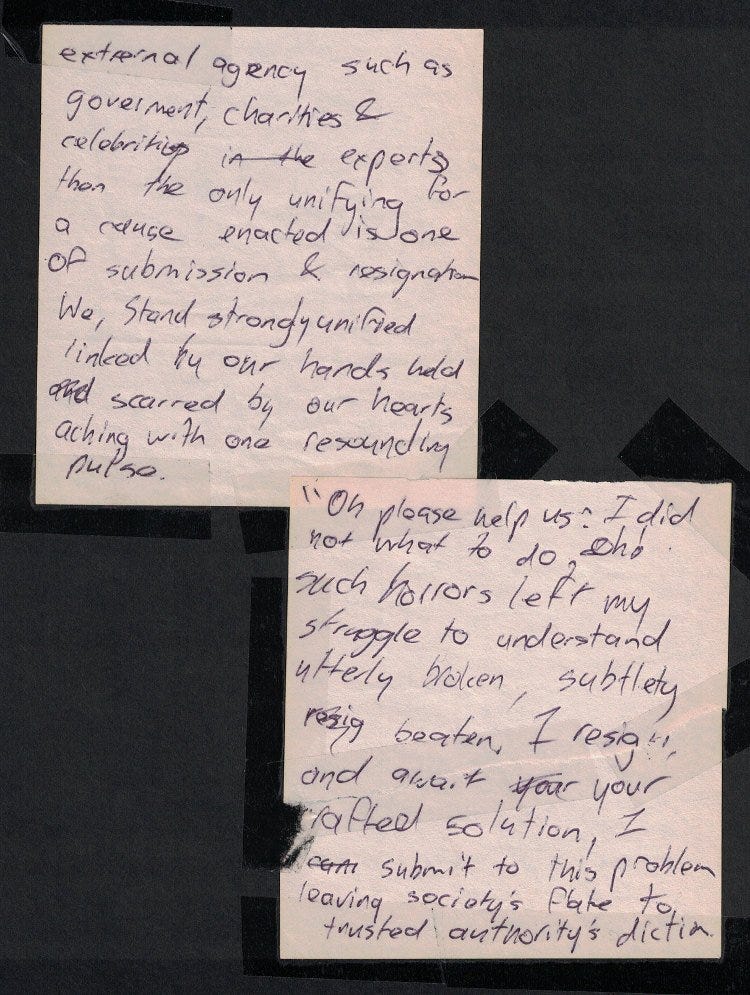 external agency such as
goverment, charities &
celebrities in the experts
then the only unifying for
a cause enacted is one
of submission & resignation
We, Stand strongly unified
linked by our hands held
and scarred by our hearts
aching with one resounding
pulse.
"Oh please help us: I did
not what to do, oh!
such horrors left my
struggle to understand
utterly broken, subtlety
resig beaten, I resign,
and await your your
rafted solution, I
can submit to this problem
leaving society's fate to
trusted authority's dictim.